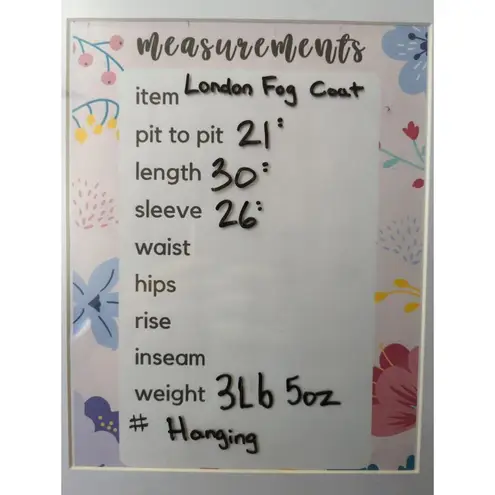 measurements
item London Fog Coat
pit to pit 21"
length 30"
sleeve 26"
waist
hips
rise
inseam
weight 3Lb 5oz
# Hanging